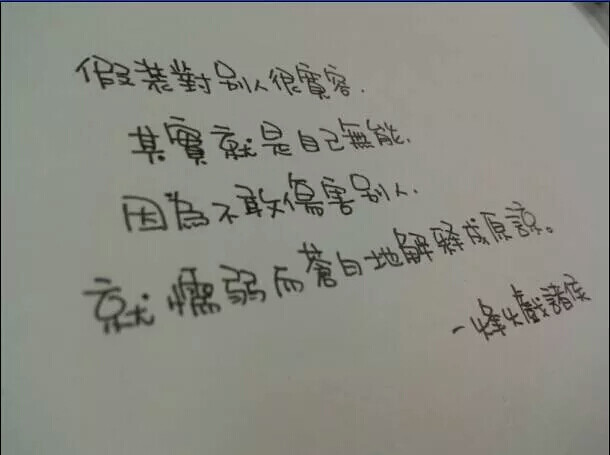 假裝對別人很寬容.
其實就是自己無能.
因為不敢傷害別人.
就懦弱而蒼白地解釋成原諒。
-烽火戲諸侯